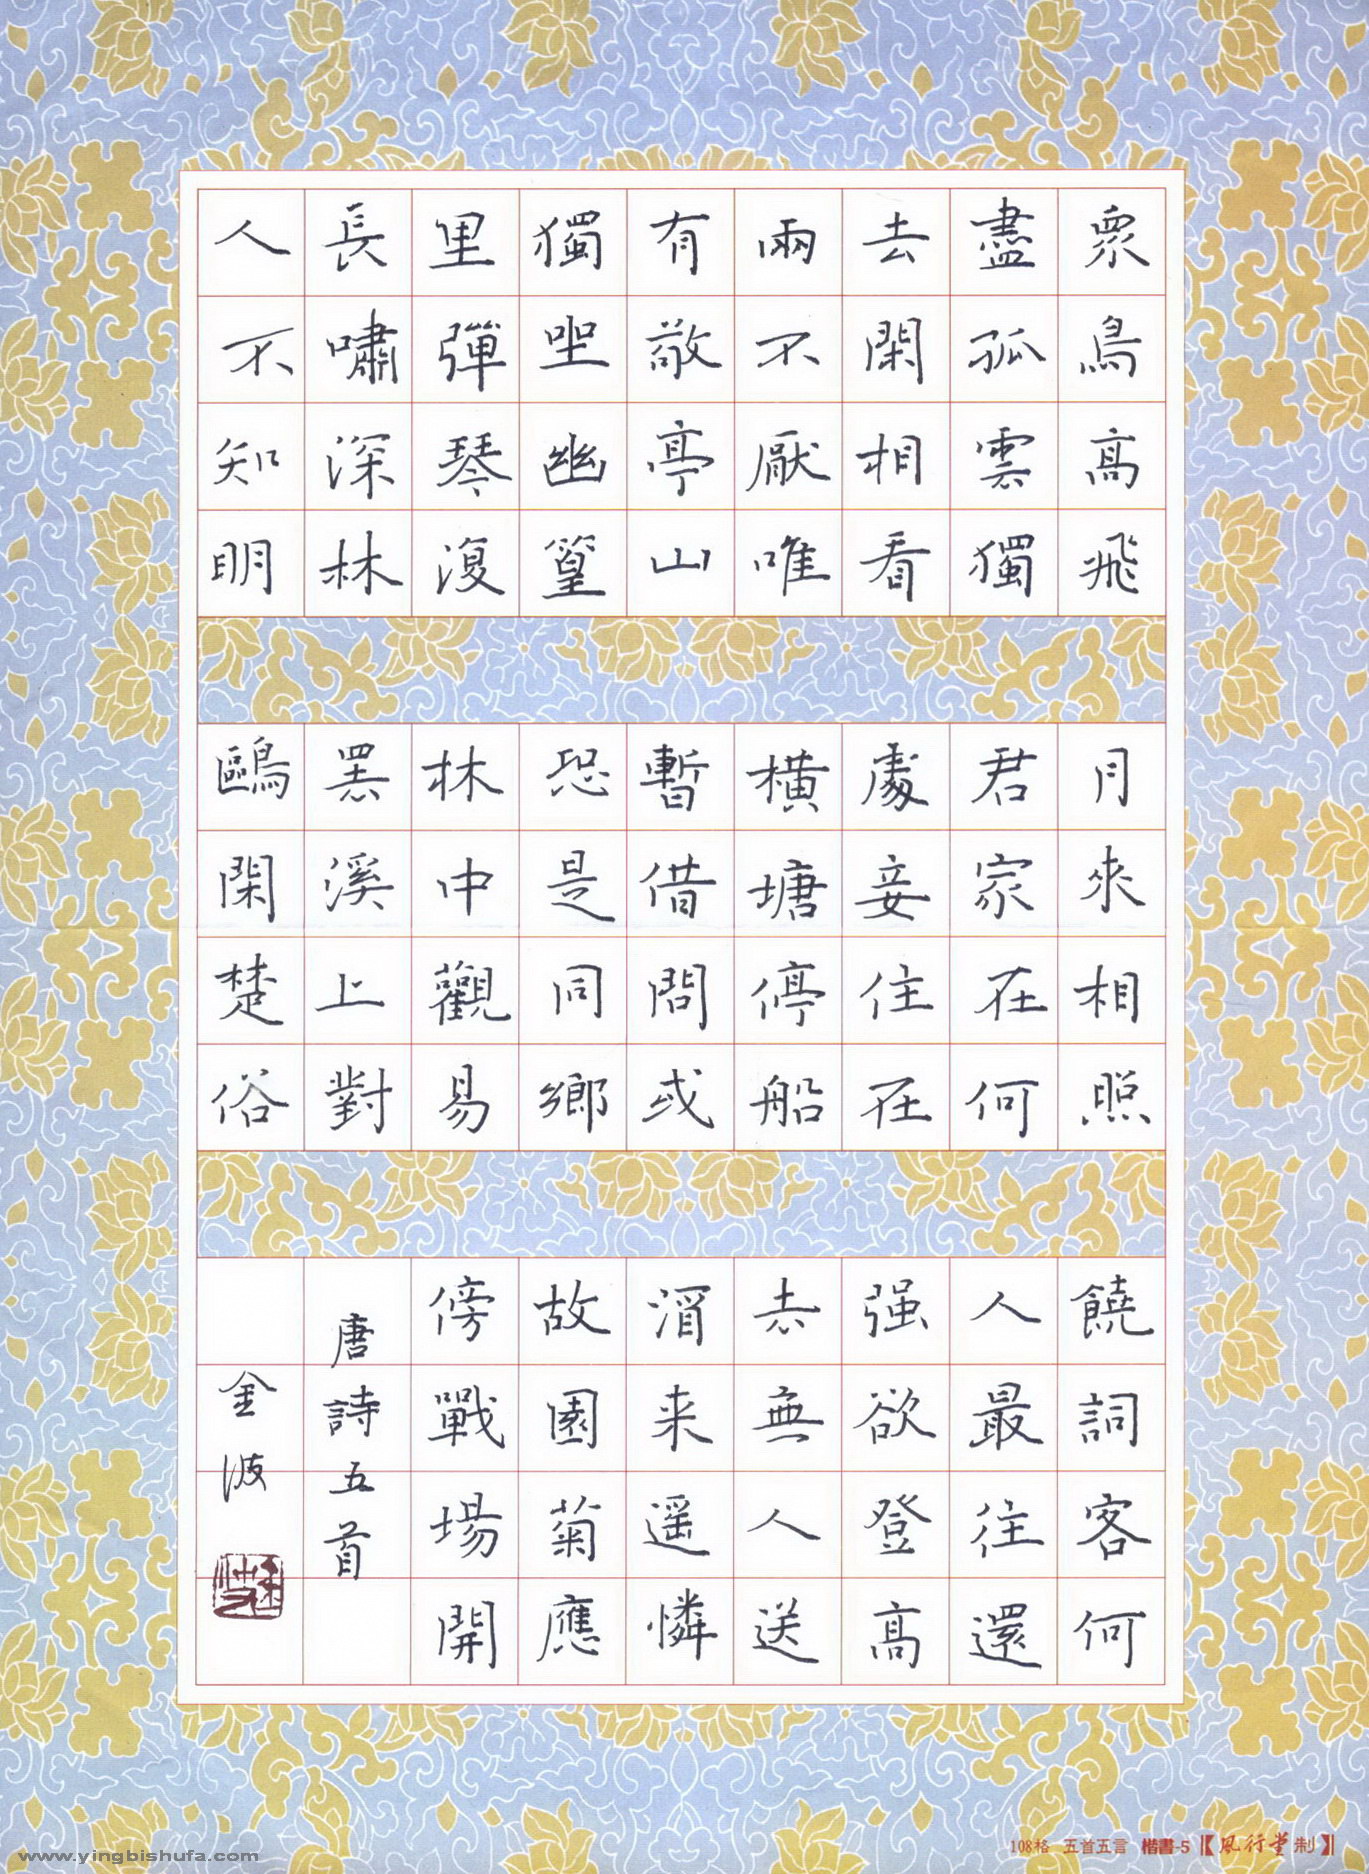 眾鳥高飛
盡孤雲獨
去閑相看
兩不厭唯
有敬亭山
獨坐幽篁
里彈琴復
長嘯深林
人不知明
月來相照
君家在何
處妾住在
橫塘停船
暫借問或
恐是同鄉
林中觀易
罷溪上對
鷗閑楚俗
饒詞客何
人最往還
强欲登高
去無人送
酒来遥憐
故園菊應
傍戰場開
唐詩五首
金波
108格 五首五言 楷書-5【風行堂制】
www.yingbishufa.com